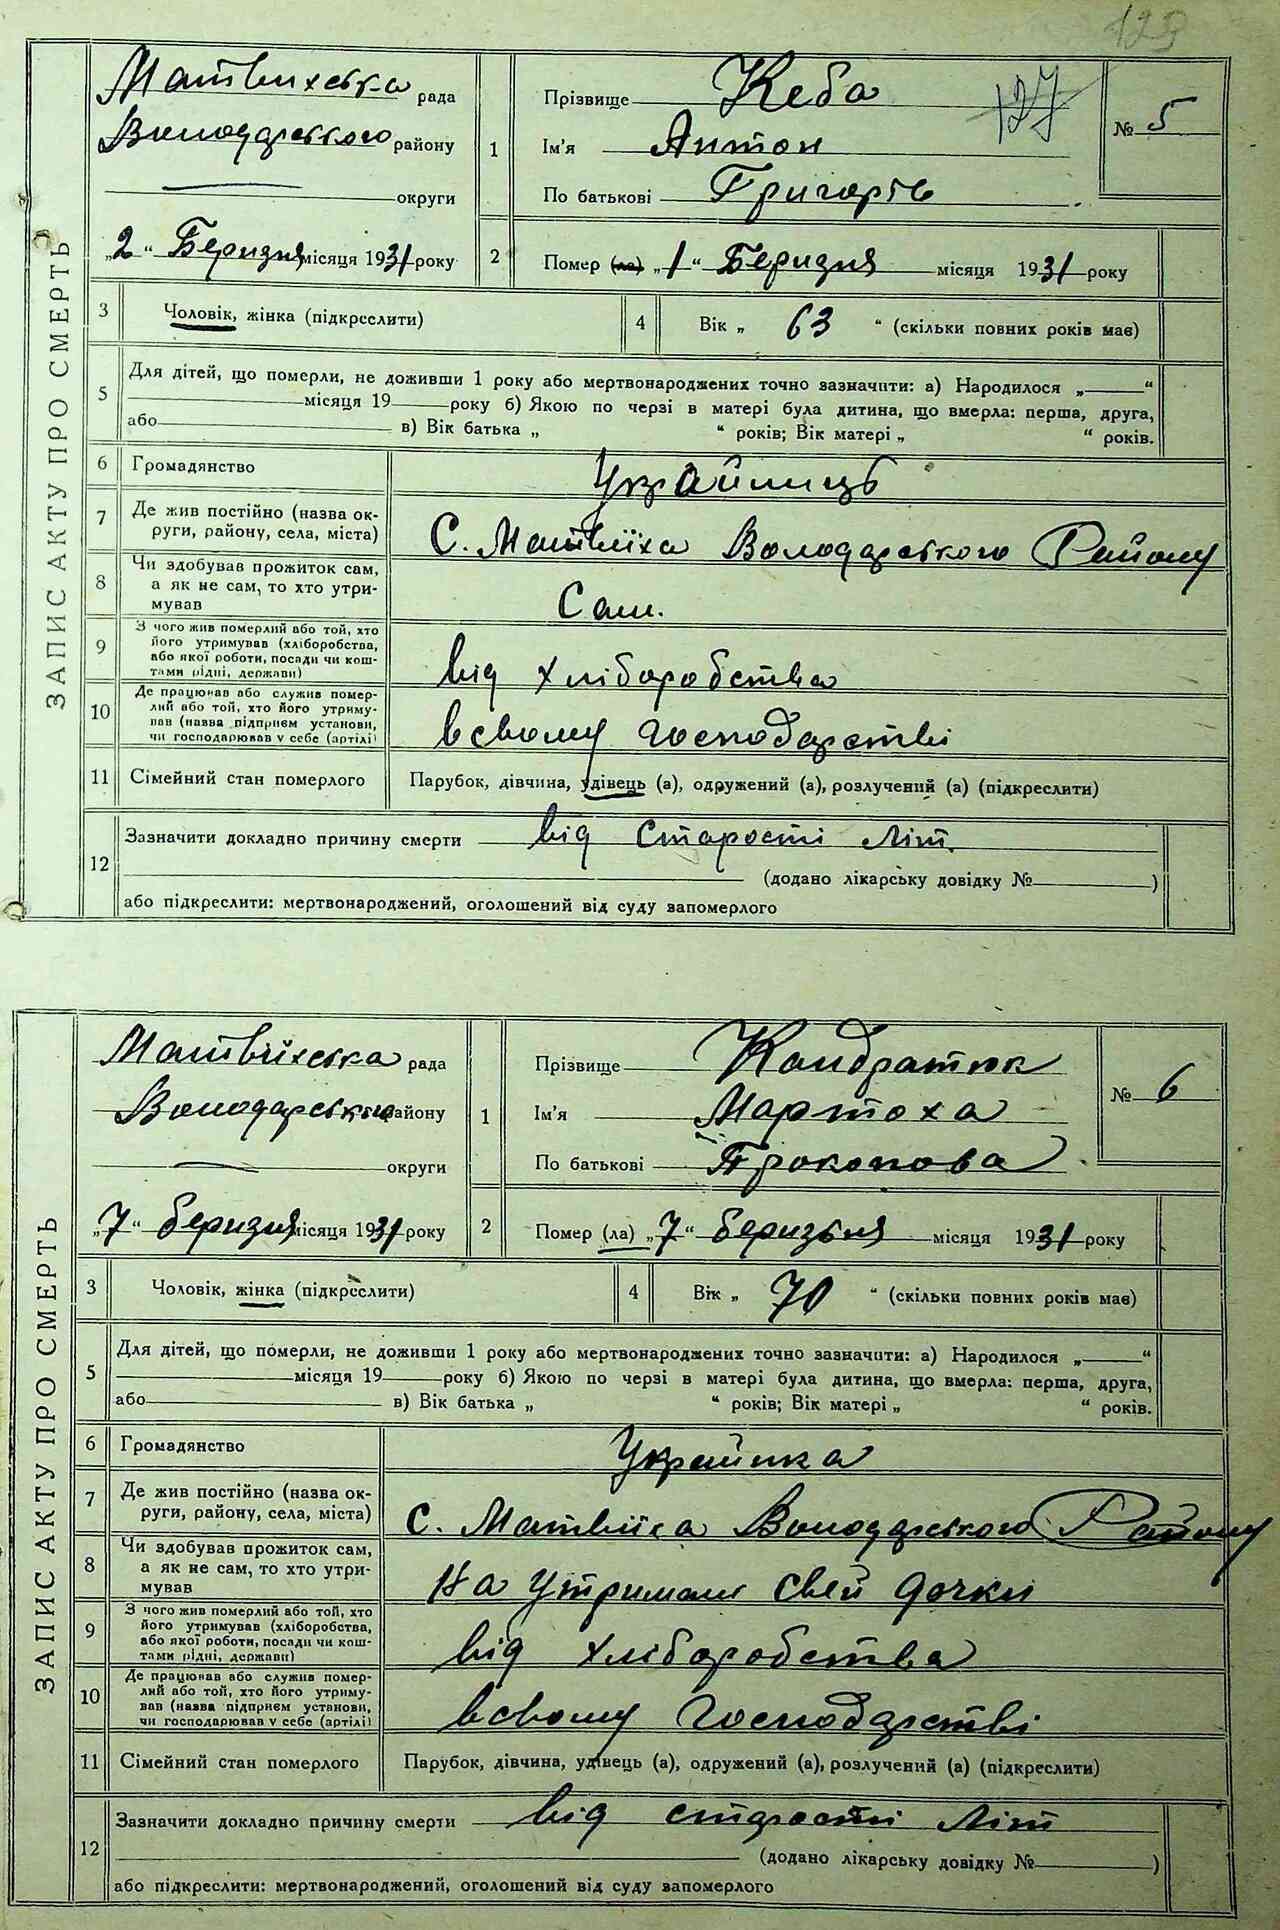 129
127
ЗАПИС АКТУ ПРО СМЕРТЬ
Матвихська рада
Володарського району
округи
„2“ Беризня місяця 1931 року
1 Прізвище Кеба
Ім'я Антон
По батькові Григорів
№ 5
2 Помер (ла) „1“ Беризня місяця 1931 року
3 Чоловік, жінка (підкреслити)
4 Вік „ 63 “ (скільки повних років має)
5 Для дітей, що померли, не доживши 1 року або мертвонароджених точно зазначити: а) Народилося „ “
місяця 19 року б) Якою по черзі в матері була дитина, що вмерла: перша, друга,
або в) Вік батька „ “ років; Вік матері „ “ років.
6 Громадянство Українець
7 Де жив постійно (назва ок-
руги, району, села, міста) С. Матвіїха Володарського Району
8 Чи здобував прожиток сам,
а як не сам, то хто утри-
мував Сам.
9 З чого жив померлий або той, хто
його утримував (хліборобства,
або якої роботи, посади чи кош-
тами рідні, держави) від хліборобства
10 Де працював або служив помер-
лий або той, хто його утриму-
вав (назва підприєм установи,
чи господарював у себе (артілі) всвому господарстві
11 Сімейний стан померлого Парубок, дівчина, удівець (а), одружений (а), розлучений (а) (підкреслити)
12 Зазначити докладно причину смерти від старості літ.
(додано лікарську довідку № )
або підкреслити: мертвонароджений, оголошений від суду запомерлого
ЗАПИС АКТУ ПРО СМЕРТЬ
Матвійхська рада
Володарського району
округи
„7“ беризня місяця 1931 року
1 Прізвище Кондратюк
Ім'я Мартоха
По батькові Прокопова
№ 6
2 Помер (ла) „7“ беризьня місяця 1931 року
3 Чоловік, жінка (підкреслити)
4 Вік „ 70 “ (скільки повних років має)
5 Для дітей, що померли, не доживши 1 року або мертвонароджених точно зазначити: а) Народилося „ “
місяця 19 року б) Якою по черзі в матері була дитина, що вмерла: перша, друга,
або в) Вік батька „ “ років; Вік матері „ “ років.
6 Громадянство Українка
7 Де жив постійно (назва ок-
руги, району, села, міста) с. Матвіїха Володарського Району
8 Чи здобував прожиток сам,
а як не сам, то хто утри-
мував На утримані свей дочки
9 З чого жив померлий або той, хто
його утримував (хліборобства,
або якої роботи, посади чи кош-
тами рідні, держави) від хліборобства
10 Де працював або служив помер-
лий або той, хто його утриму-
вав (назва підприєм установи,
чи господарював у себе (артілі) всвому господарстві
11 Сімейний стан померлого Парубок, дівчина, удівець (а), одружений (а), розлучений (а) (підкреслити)
12 Зазначити докладно причину смерти від старості літ
(додано лікарську довідку № )
або підкреслити: мертвонароджений, оголошений від суду запомерлого